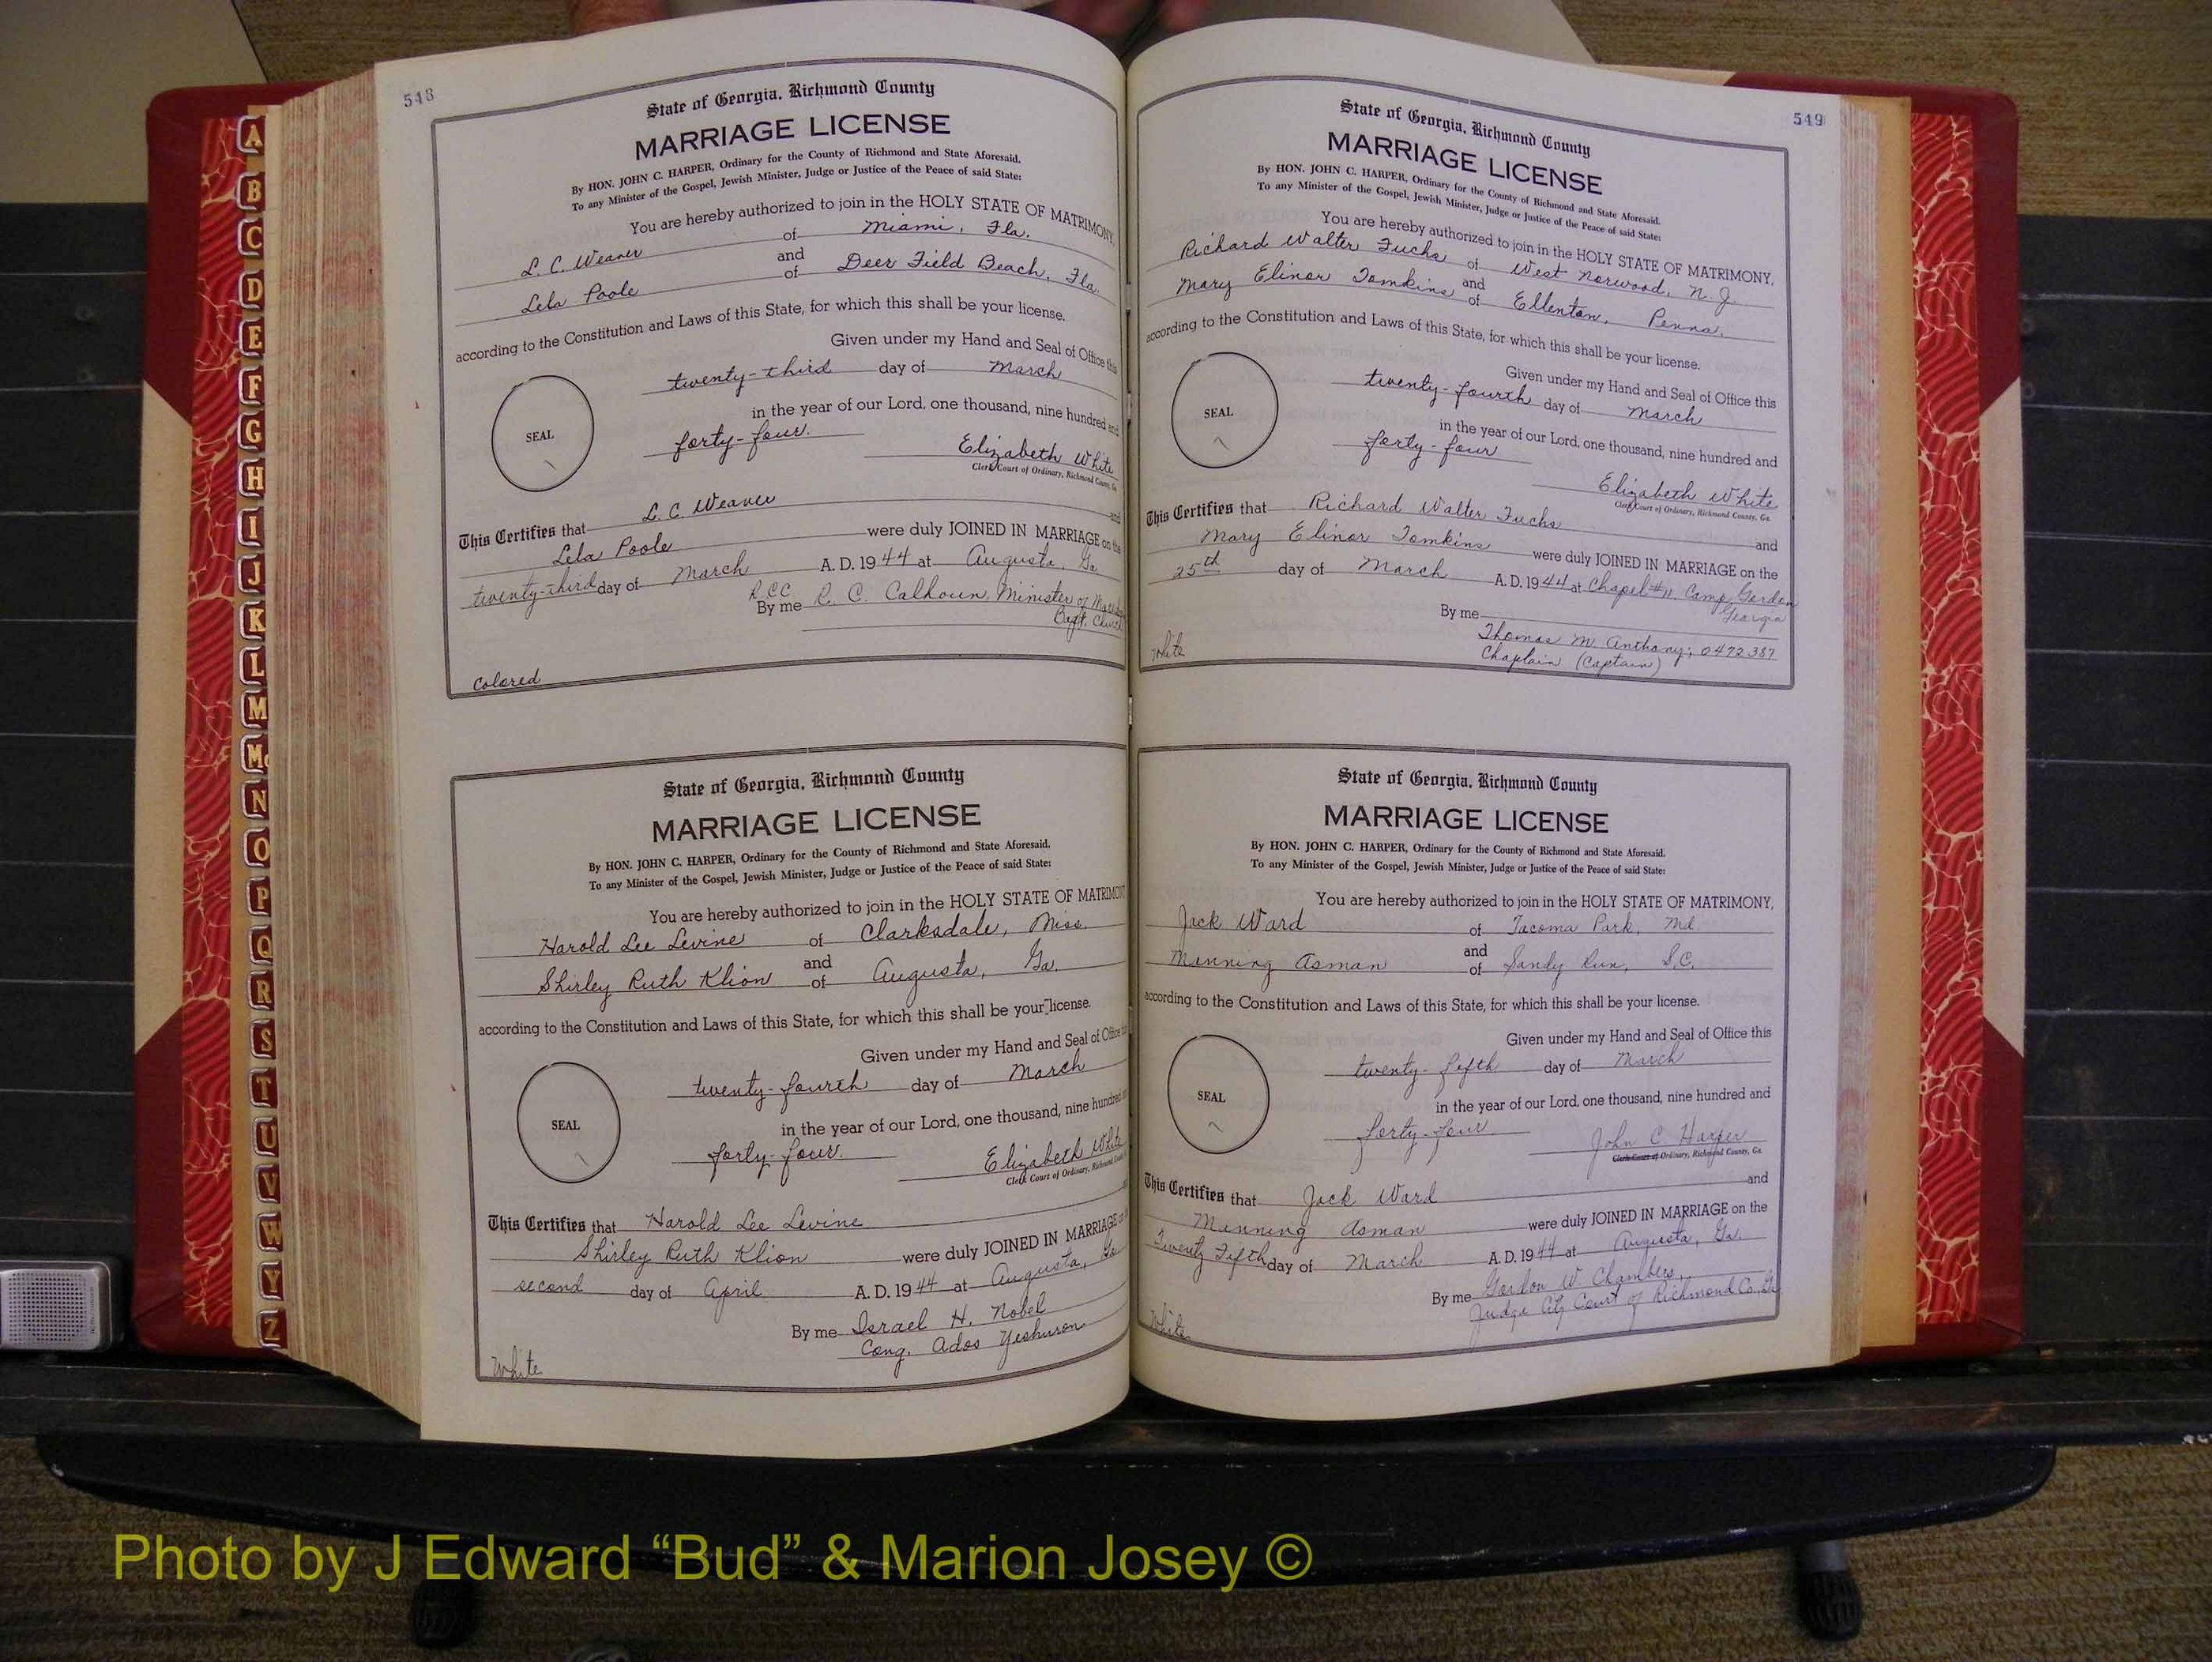 548
State of Georgia, Richmond County
MARRIAGE LICENSE
By HON. JOHN C. HARPER, Ordinary for the County of Richmond and State Aforesaid.
To any Minister of the Gospel, Jewish Minister, Judge or Justice of the Peace of said State:
You are hereby authorized to join in the HOLY STATE OF MATRIMONY,
L. C. Weaver of Miami, Fla.
and
Lela Poole of Deer Field Beach, Fla.
according to the Constitution and Laws of this State, for which this shall be your license.
Given under my Hand and Seal of Office this
twenty-third day of March
SEAL
in the year of our Lord, one thousand, nine hundred and
forty-four.
Elizabeth White
Clerk Court of Ordinary, Richmond County, Ga
L. C. Weaver
This Certifies that and
Lela Poole were duly JOINED IN MARRIAGE on the
twenty-third day of March A. D. 1944 at Augusta, Ga
R.C.C
By me R. C. Calhoun, Minister of
Bapt. Church
Colored
State of Georgia, Richmond County
MARRIAGE LICENSE
By HON. JOHN C. HARPER, Ordinary for the County of Richmond and State Aforesaid.
To any Minister of the Gospel, Jewish Minister, Judge or Justice of the Peace of said State:
You are hereby authorized to join in the HOLY STATE OF MATRIMONY
Harold Lee Levine of Clarksdale, Miss.
and
Shirley Ruth Klion of Augusta, Ga.
according to the Constitution and Laws of this State, for which this shall be your license.
Given under my Hand and Seal of Office
twenty-fourth day of March
SEAL
in the year of our Lord, one thousand, nine hundred
forty-four.
Elizabeth White
Clerk Court of Ordinary, Richmond
This Certifies that Harold Lee Levine
Shirley Ruth Klion were duly JOINED IN MARRIAGE
second day of April A. D. 1944 at Augusta, Ga
By me Israel H. Nobel
Cong. Adas Yeshuron
White
549
State of Georgia, Richmond County
MARRIAGE LICENSE
By HON. JOHN C. HARPER, Ordinary for the County of Richmond and State Aforesaid.
To any Minister of the Gospel, Jewish Minister, Judge or Justice of the Peace of said State:
You are hereby authorized to join in the HOLY STATE OF MATRIMONY,
Richard Walter Fuchs of West Norwood, N. J.
and
Mary Elinor Tomkins of Ellenton, Penna.
according to the Constitution and Laws of this State, for which this shall be your license.
Given under my Hand and Seal of Office this
twenty-fourth day of March
SEAL
in the year of our Lord, one thousand, nine hundred and
forty-four
Elizabeth White
Clerk Court of Ordinary, Richmond County, Ga.
This Certifies that Richard Walter Fuchs
and
Mary Elinor Tomkins were duly JOINED IN MARRIAGE on the
25th day of March A. D. 1944 at Chapel #11, Camp Gordon
Georgia
By me
Thomas M Anthony, 0472387
Chaplain (Captain)
White
State of Georgia, Richmond County
MARRIAGE LICENSE
By HON. JOHN C. HARPER, Ordinary for the County of Richmond and State Aforesaid.
To any Minister of the Gospel, Jewish Minister, Judge or Justice of the Peace of said State:
You are hereby authorized to join in the HOLY STATE OF MATRIMONY,
Jack Ward of Tacoma Park, Md
and
Manning Asman of Sandy Run, S.C.
according to the Constitution and Laws of this State, for which this shall be your license.
Given under my Hand and Seal of Office this
twenty-fifth day of March
SEAL
in the year of our Lord, one thousand, nine hundred and
forty-four
John C Harper
Clerk Court of Ordinary, Richmond County, Ga
This Certifies that Jack Ward and
Manning Asman were duly JOINED IN MARRIAGE on the
Twenty Fifth day of March A. D. 1944 at Augusta, Ga.
By me Gordon W Chambers,
Judge City Court of Richmond Co. Ga
White
A
B
C
D
E
F
G
H
I
J
K
L
M
Mc
N
O
P
Q
R
S
T
U
V
W
Y
Z
Photo by J Edward “Bud” & Marion Josey ©